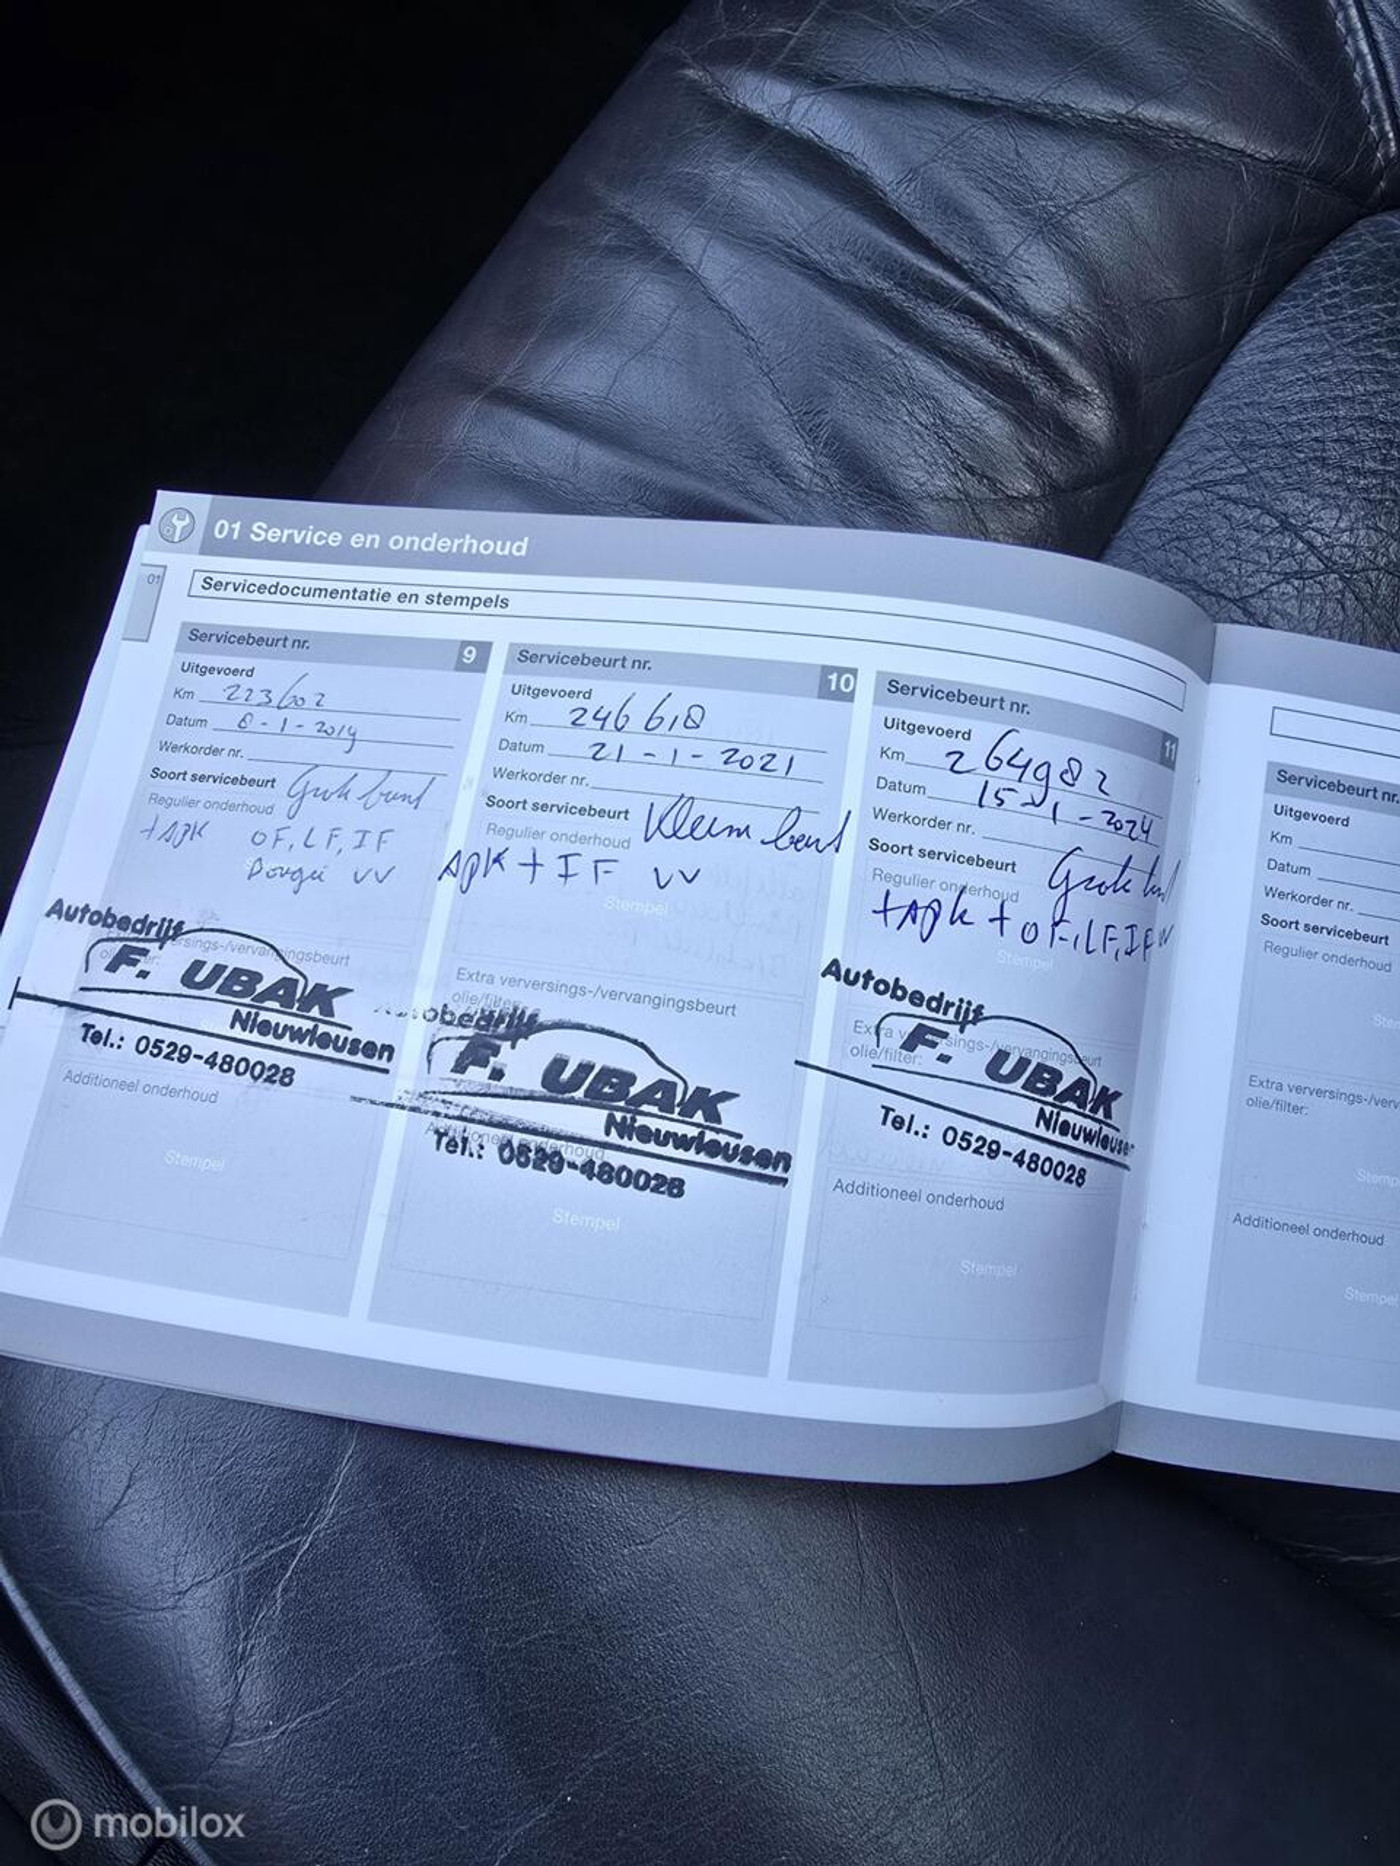 01 Service en onderhoud
01
Servicedocumentatie en stempels
Servicebeurt nr. 9
Uitgevoerd
Km 223602
Datum 8-1-2019
Werkorder nr.
Soort servicebeurt Grote beurt
Regulier onderhoud
+APK OF, LF, IF
Bougie VV
Autobedrijf
F. UBAK
Nieuwleusen
Tel.: 0529-480028
olie/filter:
Additioneel onderhoud
Stempel
Servicebeurt nr. 10
Uitgevoerd
Km 246618
Datum 21-1-2021
Werkorder nr.
Soort servicebeurt Kleine beurt
Regulier onderhoud
APK + IF VV
Stempel
Extra verversings-/vervangingsbeurt
olie/filter:
Autobedrijf
F. UBAK
Nieuwleusen
Additioneel onderhoud
Tel.: 0529-480028
Stempel
Servicebeurt nr. 11
Uitgevoerd
Km 264982
Datum 15-1-2024
Werkorder nr.
Soort servicebeurt Grote
Regulier onderhoud
+APK + OF, LF, IF
Stempel
Autobedrijf
Extra verversings-/vervangingsbeurt
olie/filter:
F. UBAK
Nieuwleuse
Tel.: 0529-480028
Additioneel onderhoud
Stempel
Servicebeurt nr.
Uitgevoerd
Km
Datum
Werkorder nr.
Soort servicebeurt
Regulier onderhoud
Extra verversings-/verv
olie/filter:
Additioneel onderhoud
Stempel
mobilox